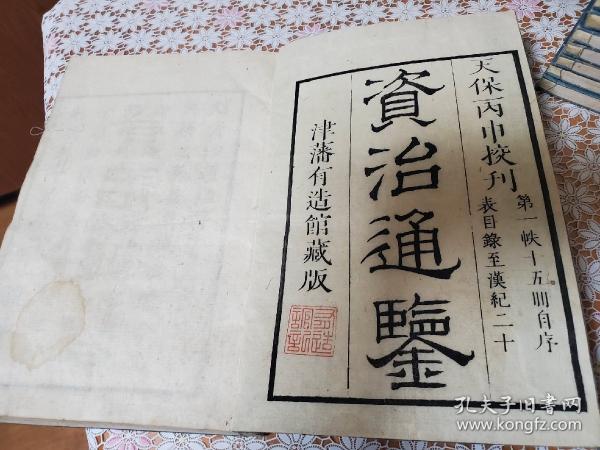 天保丙申挍刊
第一帙十五冊自序
表目錄至漢紀二十
資治通鑒
津藩有造館藏版
孔夫子旧书网
www.kongfz.com